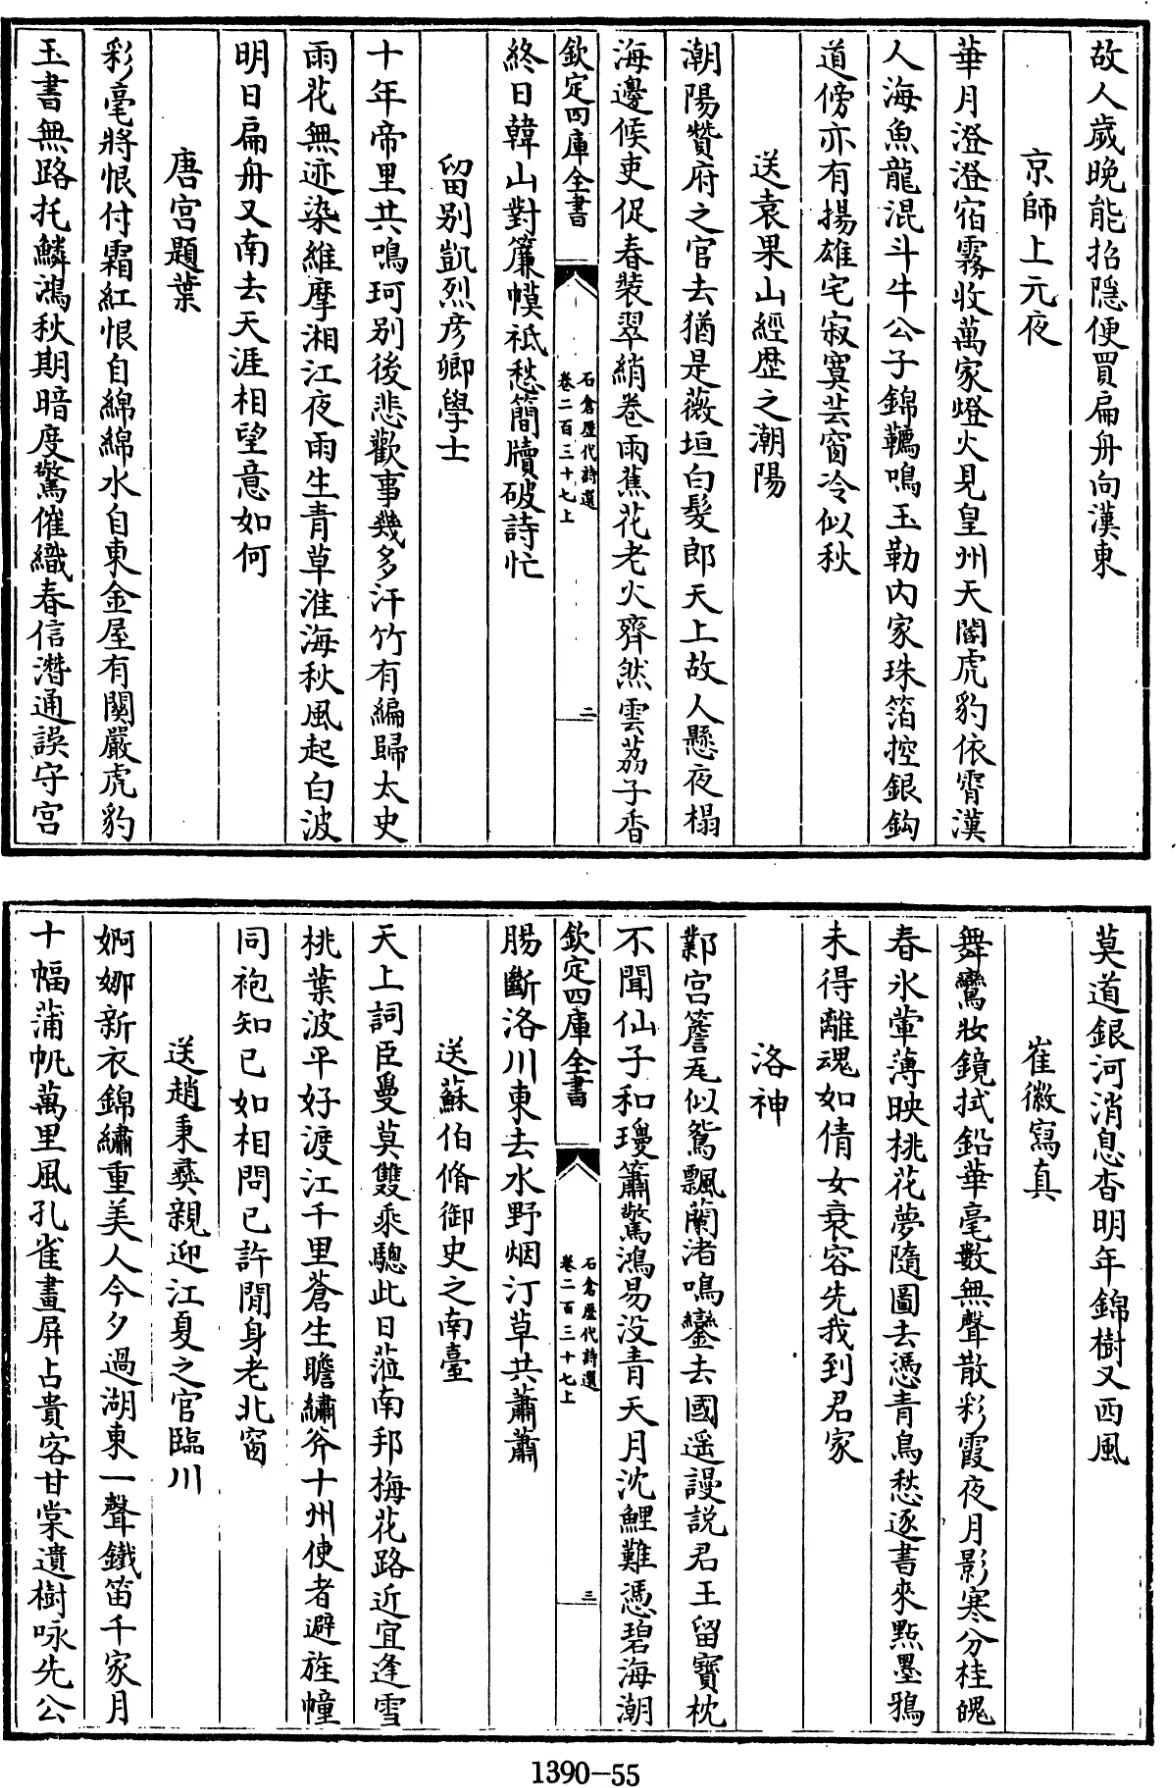 故人歲晚能招隱便買扁舟向漢東
京師上元夜
華月澄澄宿霧收萬家燈火見皇州天閽虎豹依霄漢
人海魚龍混斗牛公子錦韉鳴玉勒内家珠箔控銀鈎
道傍亦有揚雄宅寂寞芸窗冷似秋
送袁果山經歴之潮陽
潮陽贊府之官去猶是薇垣白髮郎天上故人懸夜榻
海邊候吏促春裝翠綃卷雨蕉花老火齊然雲荔子香
欽定四庫全書
石倉歷代詩選
卷二百三十七上
二
終日韓山對簾幙祗愁簡牘破詩忙
留别凱烈彦卿學士
十年帝里共鳴珂别後悲歡事幾多汗竹有編歸太史
雨花無迹染維摩湘江夜雨生青草淮海秋風起白波
明日扁舟又南去天涯相望意如何
唐宫題葉
彩毫將恨付霜紅恨自綿綿水自東金屋有關嚴虎豹
玉書無路托鱗鴻秋期暗度驚催織春信潛通誤守宫
莫道銀河消息杳明年錦樹又西風
崔徽寫真
舞鸞妝鏡拭鉛華毫數無聲散彩霞夜月影寒分桂魄
春氷暈薄映桃花夢隨圖去憑青鳥愁逐書來㸃墨鴉
未得離魂如倩女衰容先我到君家
洛神
鄴宫簷瓦似鴛飄蘭渚鳴鑾去國遥謾説君王留寶枕
不聞仙子和瓊簫驚鴻易没青天月沈鯉難憑碧海潮
欽定四庫全書
石倉歷代詩選
卷二百三十七上
三
腸斷洛川東去水野烟汀草共蕭蕭
送蘇伯脩御史之南臺
天上詞臣疊莫雙乘驄此日涖南邦梅花路近宜逢雪
桃葉波平好渡江千里蒼生瞻繡斧十州使者避旌幢
同袍知己如相問已許閒身老北窗
送趙秉彝親迎江夏之官臨川
婀娜新衣錦繡重美人今夕過湖東一聲鐵笛千家月
十幅蒲帆萬里風孔雀畫屏占貴客甘棠遺樹咏先公
1390-55